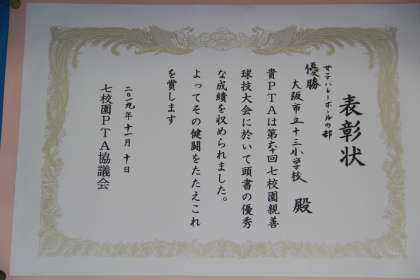 表彰状
女子バレーボールの部
優勝
大阪市立十三小学校 殿
貴PTAは第六十回七校園親善
球技大会に於いて頭書の優秀
な成績を収められました。
よってその健闘をたたえこれ
を賞します
二〇一九年十一月十日
七校園PTA協議会